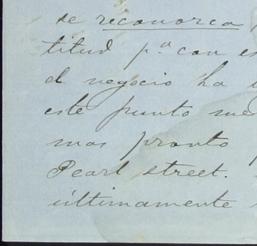 se reconozca
titud p.ª con es
el negocio ha
este punto me
mas pronto
Pearl street.
últimamente